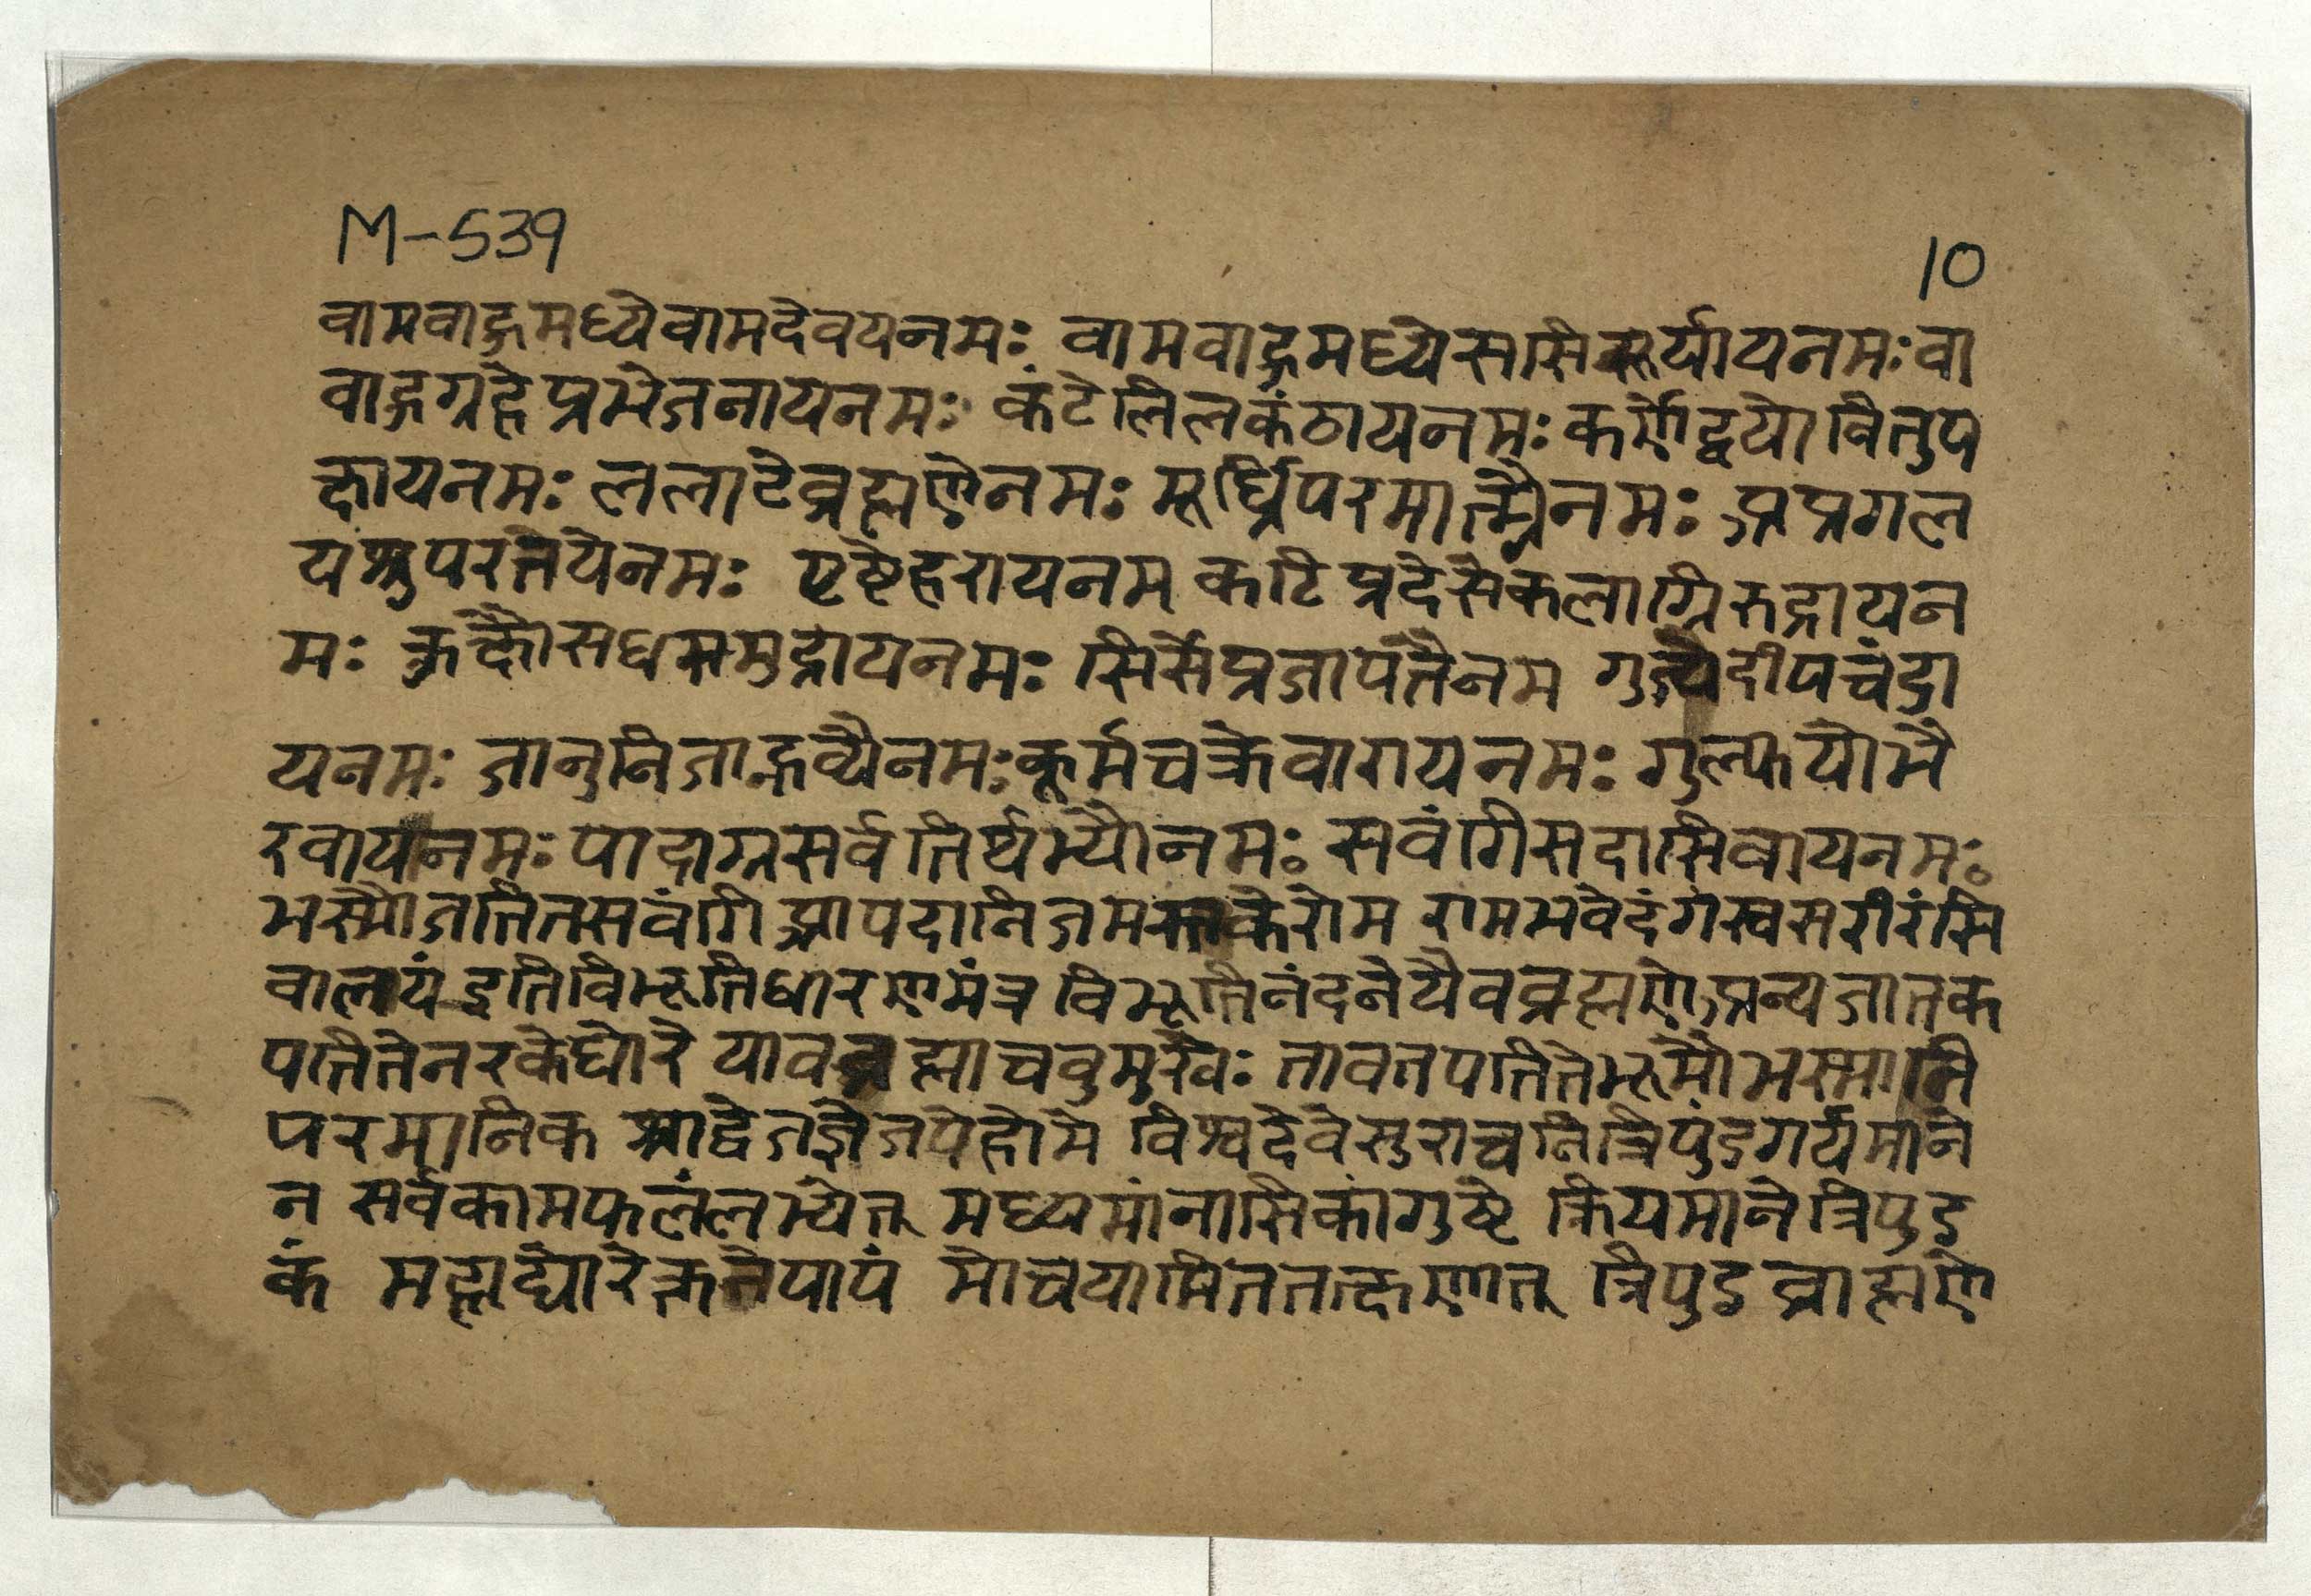 M-539
10
वामवाहुमध्येवामदेवयनमः वामवाहुमध्येससिसूर्यायनमः वा
वाहुग्रहेप्रभेजनायनमः कंटेलिलकंठायनमः कर्णेद्वयोवितुप
क्षायनमः ललाटेब्रह्मणेनमः मूर्ध्निपरमात्म्नैनमः अप्रगल
यंश्रुपरतेयेनमः पृष्टेहरायनम कटिप्रदेसेकलाग्निरुद्रायन
मः कुक्षौसधसमुद्रायनमः सिर्सेप्रजापतैनम गुज्येदीपचंद्रा
यनमः जानुनिजाह्नव्यैनमः कूर्मचक्रेवारायनमः गुल्फयोभै
रवायनमः पादाग्रसर्वतिर्थभ्यौनमः सर्वांगेसदासिवायनमः
भस्मौजतितसर्वांगे आपदानिजमस्तकेरोम रामभवेदंगंस्वसरीरंसि
वालयं इतिविभूतिधारणमंत्र विभूतिनंदनेयैवब्रह्मणे अन्यजातक
पतितेनरकेघोरे यावब्रह्माचवुमुखैः तावतपतितेभूमौभस्मानि
परमानिक श्राद्वेजज्ञेजपेहोमे विश्वदेवेसुराचनित्रिपुंडगर्यमाने
न सर्वकामफलंलभ्येत् मध्यमांनासिकांगुष्टे क्रियमानेत्रिपुड
कं महाघोरेक्रतेपापं मोचयामिततत्क्षणात् त्रिपुडब्राह्मणे